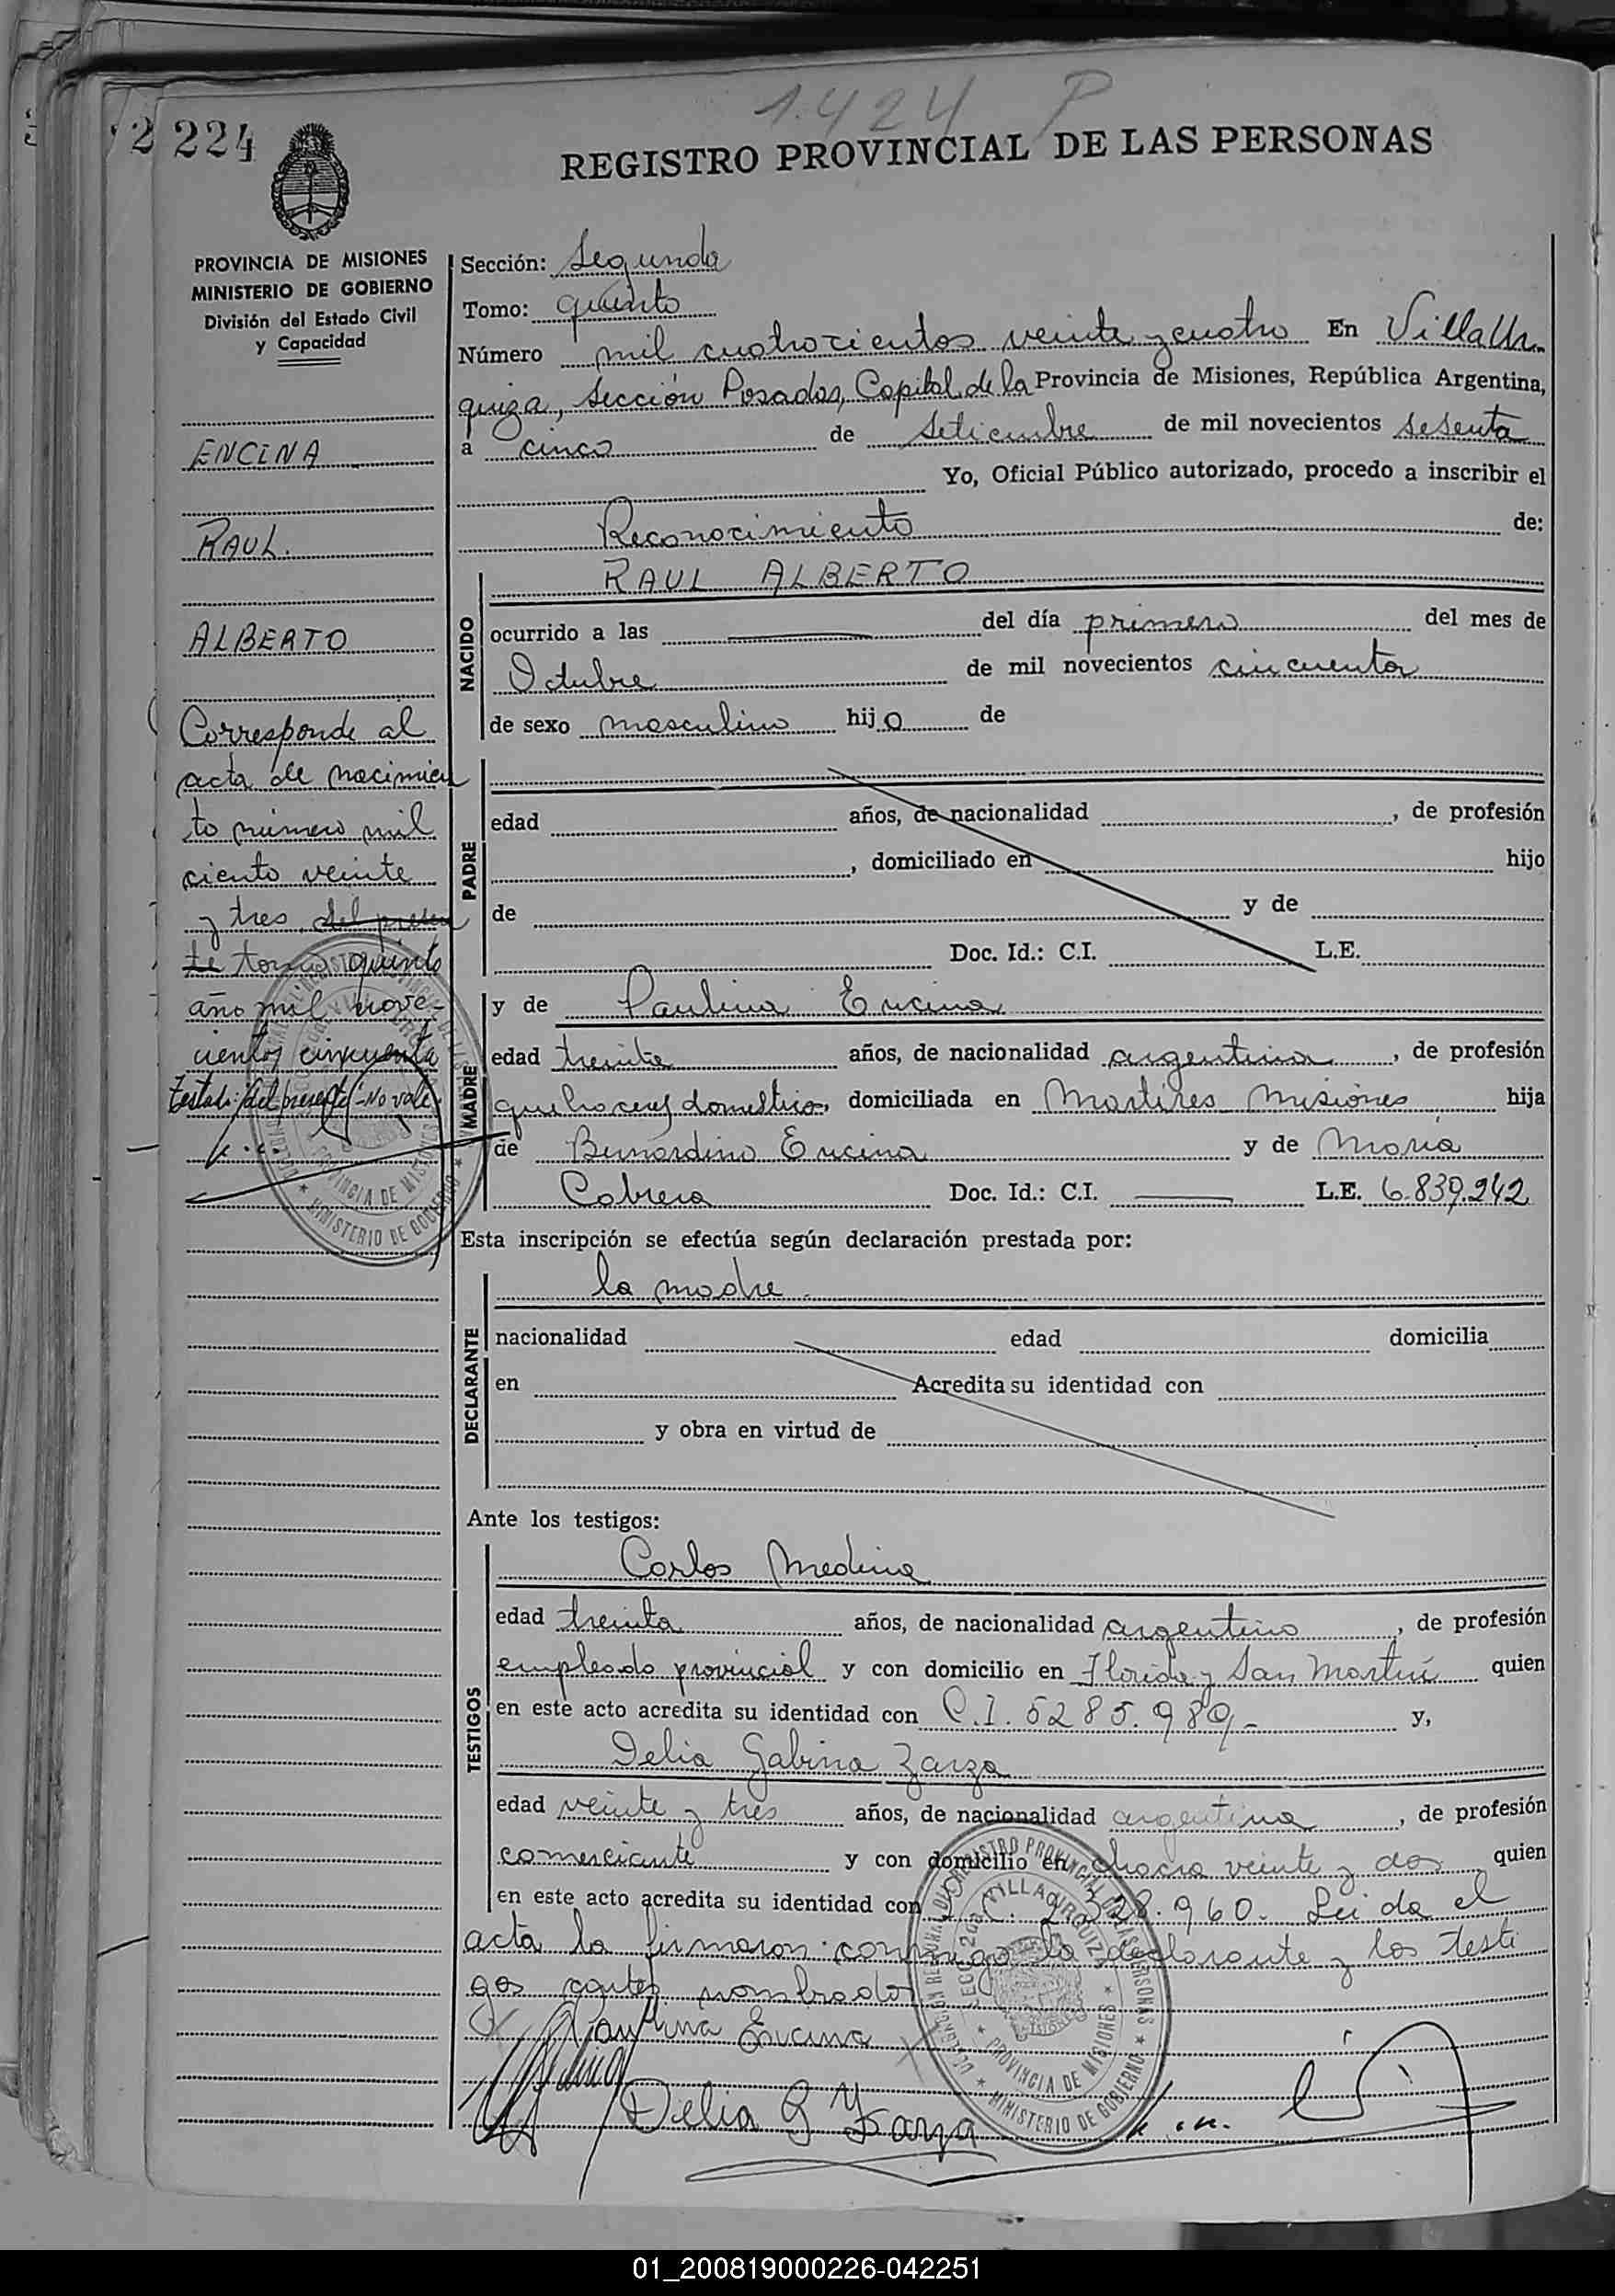 1.424 P
2 224
REGISTRO PROVINCIAL DE LAS PERSONAS
PROVINCIA DE MISIONES
MINISTERIO DE GOBIERNO
División del Estado Civil
y Capacidad
ENCINA
RAUL.
ALBERTO
Corresponde al
acta de nacimien
to número mil
ciento veinte
y tres del presen
te tomo quinto
año mil nove-
cientos cincuenta
Testado: "del presente" - No vale
Sección: Segunda
Tomo: quinto
Número mil cuatrocientos veinte y cuatro En Villa Ur
quiza, Sección Posadas, Capital de la Provincia de Misiones, República Argentina,
a cinco de Setiembre de mil novecientos sesenta
Yo, Oficial Público autorizado, procedo a inscribir el
Reconocimiento de:
NACIDO
RAUL ALBERTO
ocurrido a las del día primero del mes de
Octubre de mil novecientos cincuenta
de sexo masculino hijo de
PADRE
edad años, de nacionalidad , de profesión
, domiciliado en hijo
de y de
Doc. Id.: C.I. L.E.
MADRE
y de Paulina Encina
edad treinta años, de nacionalidad argentina, de profesión
quehaceres domesticos, domiciliada en Martires Misiones hija
de Bernardino Encina y de Maria
Cabrera Doc. Id.: C.I. L.E. 6.839.242
Esta inscripción se efectúa según declaración prestada por:
DECLARANTE
la madre
nacionalidad edad domicilia
en Acredita su identidad con
y obra en virtud de
Ante los testigos:
TESTIGOS
Carlos Medina
edad treinta años, de nacionalidad argentino, de profesión
empleado provincial y con domicilio en Florida y San Martín quien
en este acto acredita su identidad con C.I. 5285.989- y,
Delia Gabina Zarza
edad veinte y tres años, de nacionalidad argentina, de profesión
comerciante y con domicilio en chacra veinte y dos quien
en este acto acredita su identidad con L.C. 2.328.960. Leida el
acta la firmaron conmigo la declarante y los testi
gos antes nombrados
Paulina Encina
Delia G Zarza
01_200819000226-042251